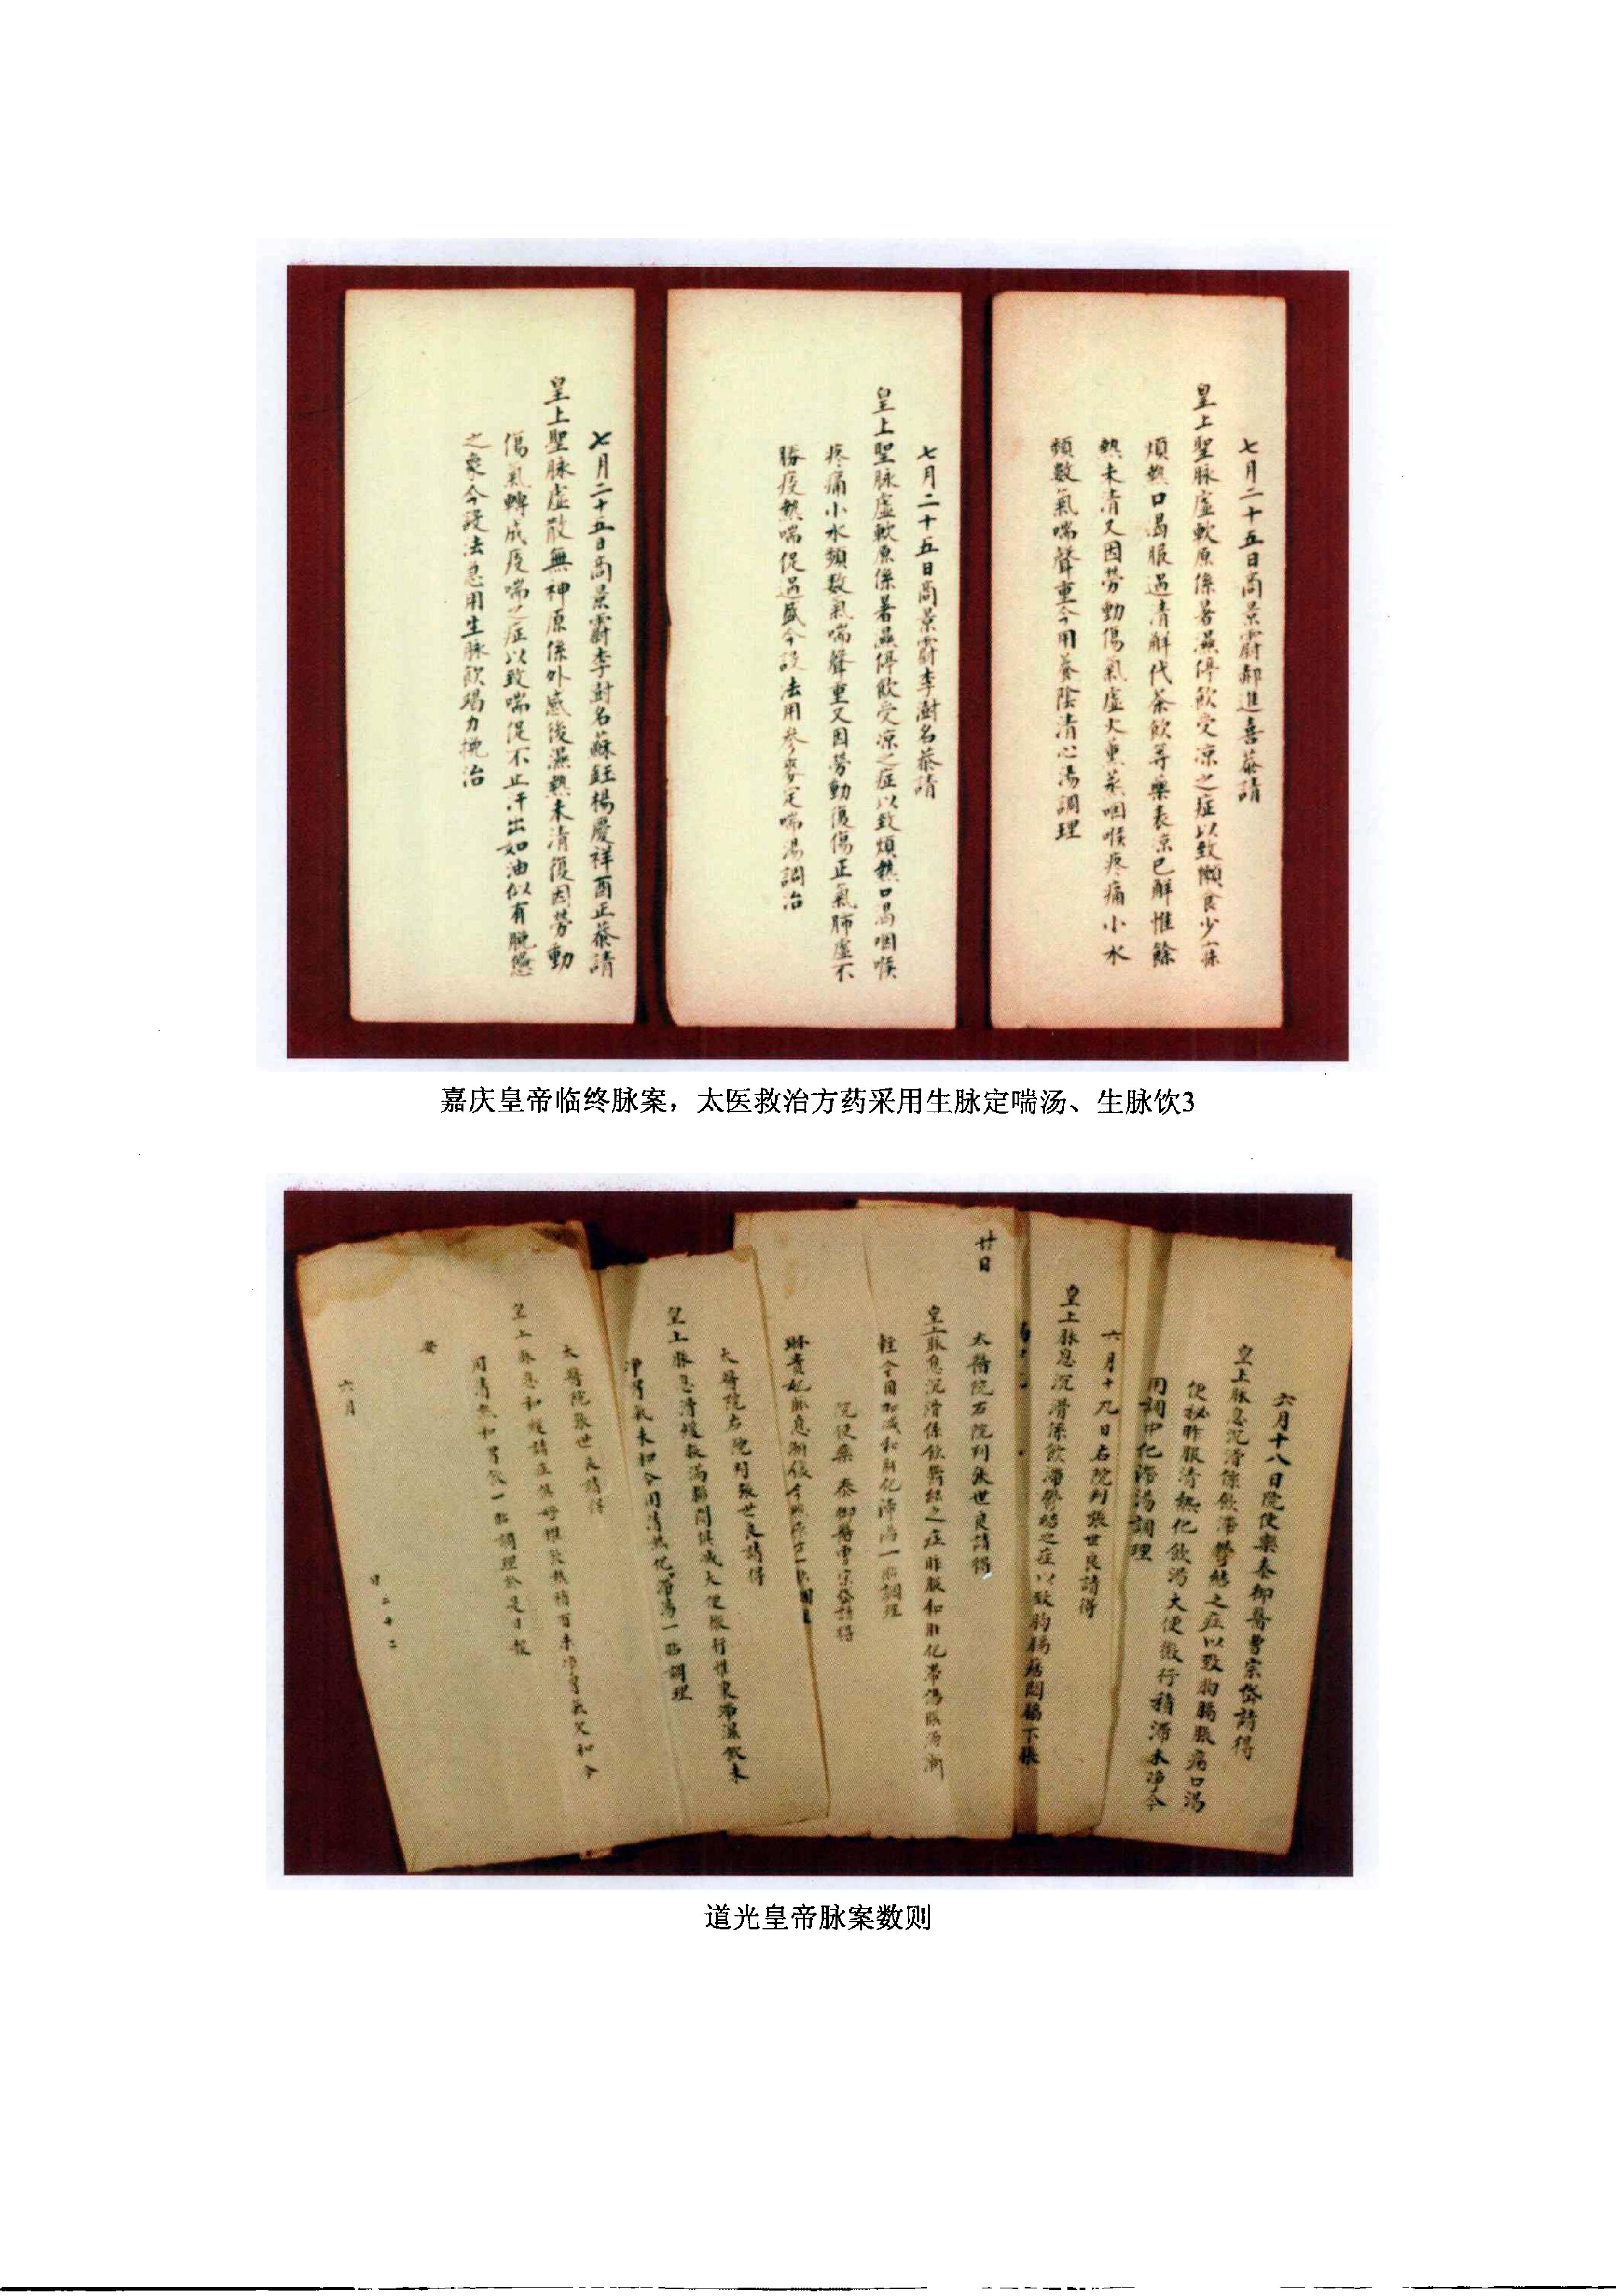 七月二十五日商景霨郝進喜恭請
皇上聖脉虛軟原係暑濕停飲受凉之症以致懶食少寐
煩熱口渴服過清解代茶飲等藥表凉已解惟餘
熱未清又因勞動傷氣虛火熏蒸咽喉疼痛小水
頻數氣喘聲重今用養陰清心湯調理
七月二十五日商景霨李澍名恭請
皇上聖脉虛軟原係暑濕停飲受凉之症以致煩熱口渴咽喉
疼痛小水頻數氣喘聲重又因勞動復傷正氣肺虛不
勝痰熱喘促過盛今設法用參麥定喘湯調治
七月二十五日商景霨李澍名蘇鈺楊慶祥酉正恭請
皇上聖脉虛散無神原係外感後濕熱未清復因勞動
傷氣轉成痰喘之症以致喘促不止汗出如油似有脫
之象今設法急用生脉飲竭力挽治
嘉庆皇帝临终脉案，太医救治方药采用生脉定喘汤、生脉饮3
六月十八日院使欒泰御醫曹宗岱請得
皇上脉息沉滑係飲滯鬱結之症以致胸膈脹痛口渴
便秘昨服清熱化飲湯大便微行積滯未淨今
用調中化滯湯調理
六月十九日右院判張世良請得
皇上脉息沉滑係飲滯鬱結之症以致胸膈痞悶腸下脹
廿日
太醫院右院判張世良請得
皇上脉息沉滑係飲滯結之症昨服和肝化滯湯脹漸
輕今用加減和肝化滯湯一貼調理
院使欒泰御醫曹宗岱請得
琳貴妃脉息漸緩今照原方一貼調理
太醫院右院判張世良請得
皇上脉息滑緩脹滿腸悶俱減大便微行惟滯濕飲未
淨胃氣未和今用清熱化滯湯一貼調理
太醫院張世良請得
皇上脉息和緩諸症俱好惟飲熱稍有未淨胃氣又和今
用清熱和胃飲一貼調理於是日報
安
六月
日二十二
道光皇帝脉案数则